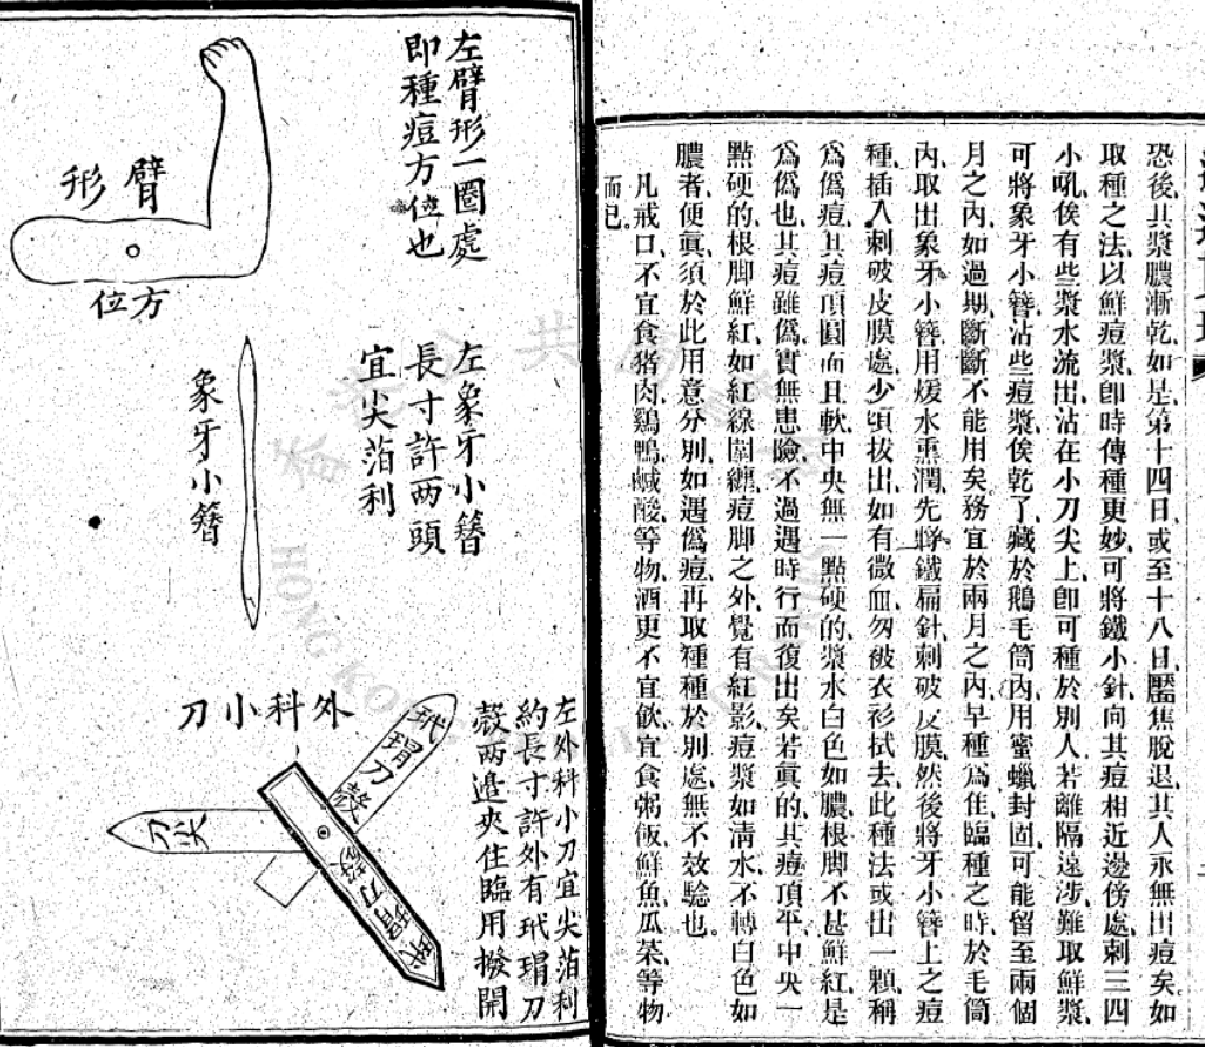 恐後其漿膿漸乾、如是、第十四日或至十八日、靨焦脫退、其人永無出痘矣如
取種之法、以鮮痘漿、即時傳種更妙、可將鐵小針、向其痘相近邊傍處、刺三四
小吼、俟有些漿水流出、沾在小刀尖上、即可種於別人、若離隔遠涉、難取鮮漿、
可將象牙小簪、沾些痘漿、俟乾了、藏於鵝毛筒內、用蜜蠟封固、可能留至兩個
月之內、如過期、斷斷不能用矣、務宜於兩月之內、早種為佳、臨種之時、於毛筒
內、取出象牙小簪、用煖水熏潤、先將鐵扁針、刺破皮膜、然後將牙小簪上之痘
種、插入刺破皮膜處、少頃拔出、如有微血、勿被衣衫拭去、此種法或出一顆、稱
為偽痘、其痘頂圓而且軟、中央無一點硬的、漿水白色如膿、根脚不甚鮮紅、是
為偽也、其痘雖偽、實無患險、不過遇時行而復出矣、若真的、其痘頂平、中央一
點硬的、根脚鮮紅、如紅線圍纏、痘脚之外、覺有紅影、痘漿如清水、不轉白色如
膿者、便真、須於此用意分別、如遇偽痘、再取種種於別處、無不效驗也。
凡戒口、不宜食猪肉、鷄鴨、鹹酸、等物、酒更不宜飲、宜食粥飯、鮮魚、瓜菜、等物
而已。
左臂形一圈處
即種痘方位也
臂形
方位
左象牙小簪
長寸許两頭
宜尖萡利
象牙小簪
外科小刀
左外科小刀宜尖萡利
約長寸許外有玳瑁刀
殼两邉夾住臨用撥開
玳瑁刀殼
刀尖
玳瑁刀殼
香港公共圖書館
HONG KONG PUBLIC LIBRARIES